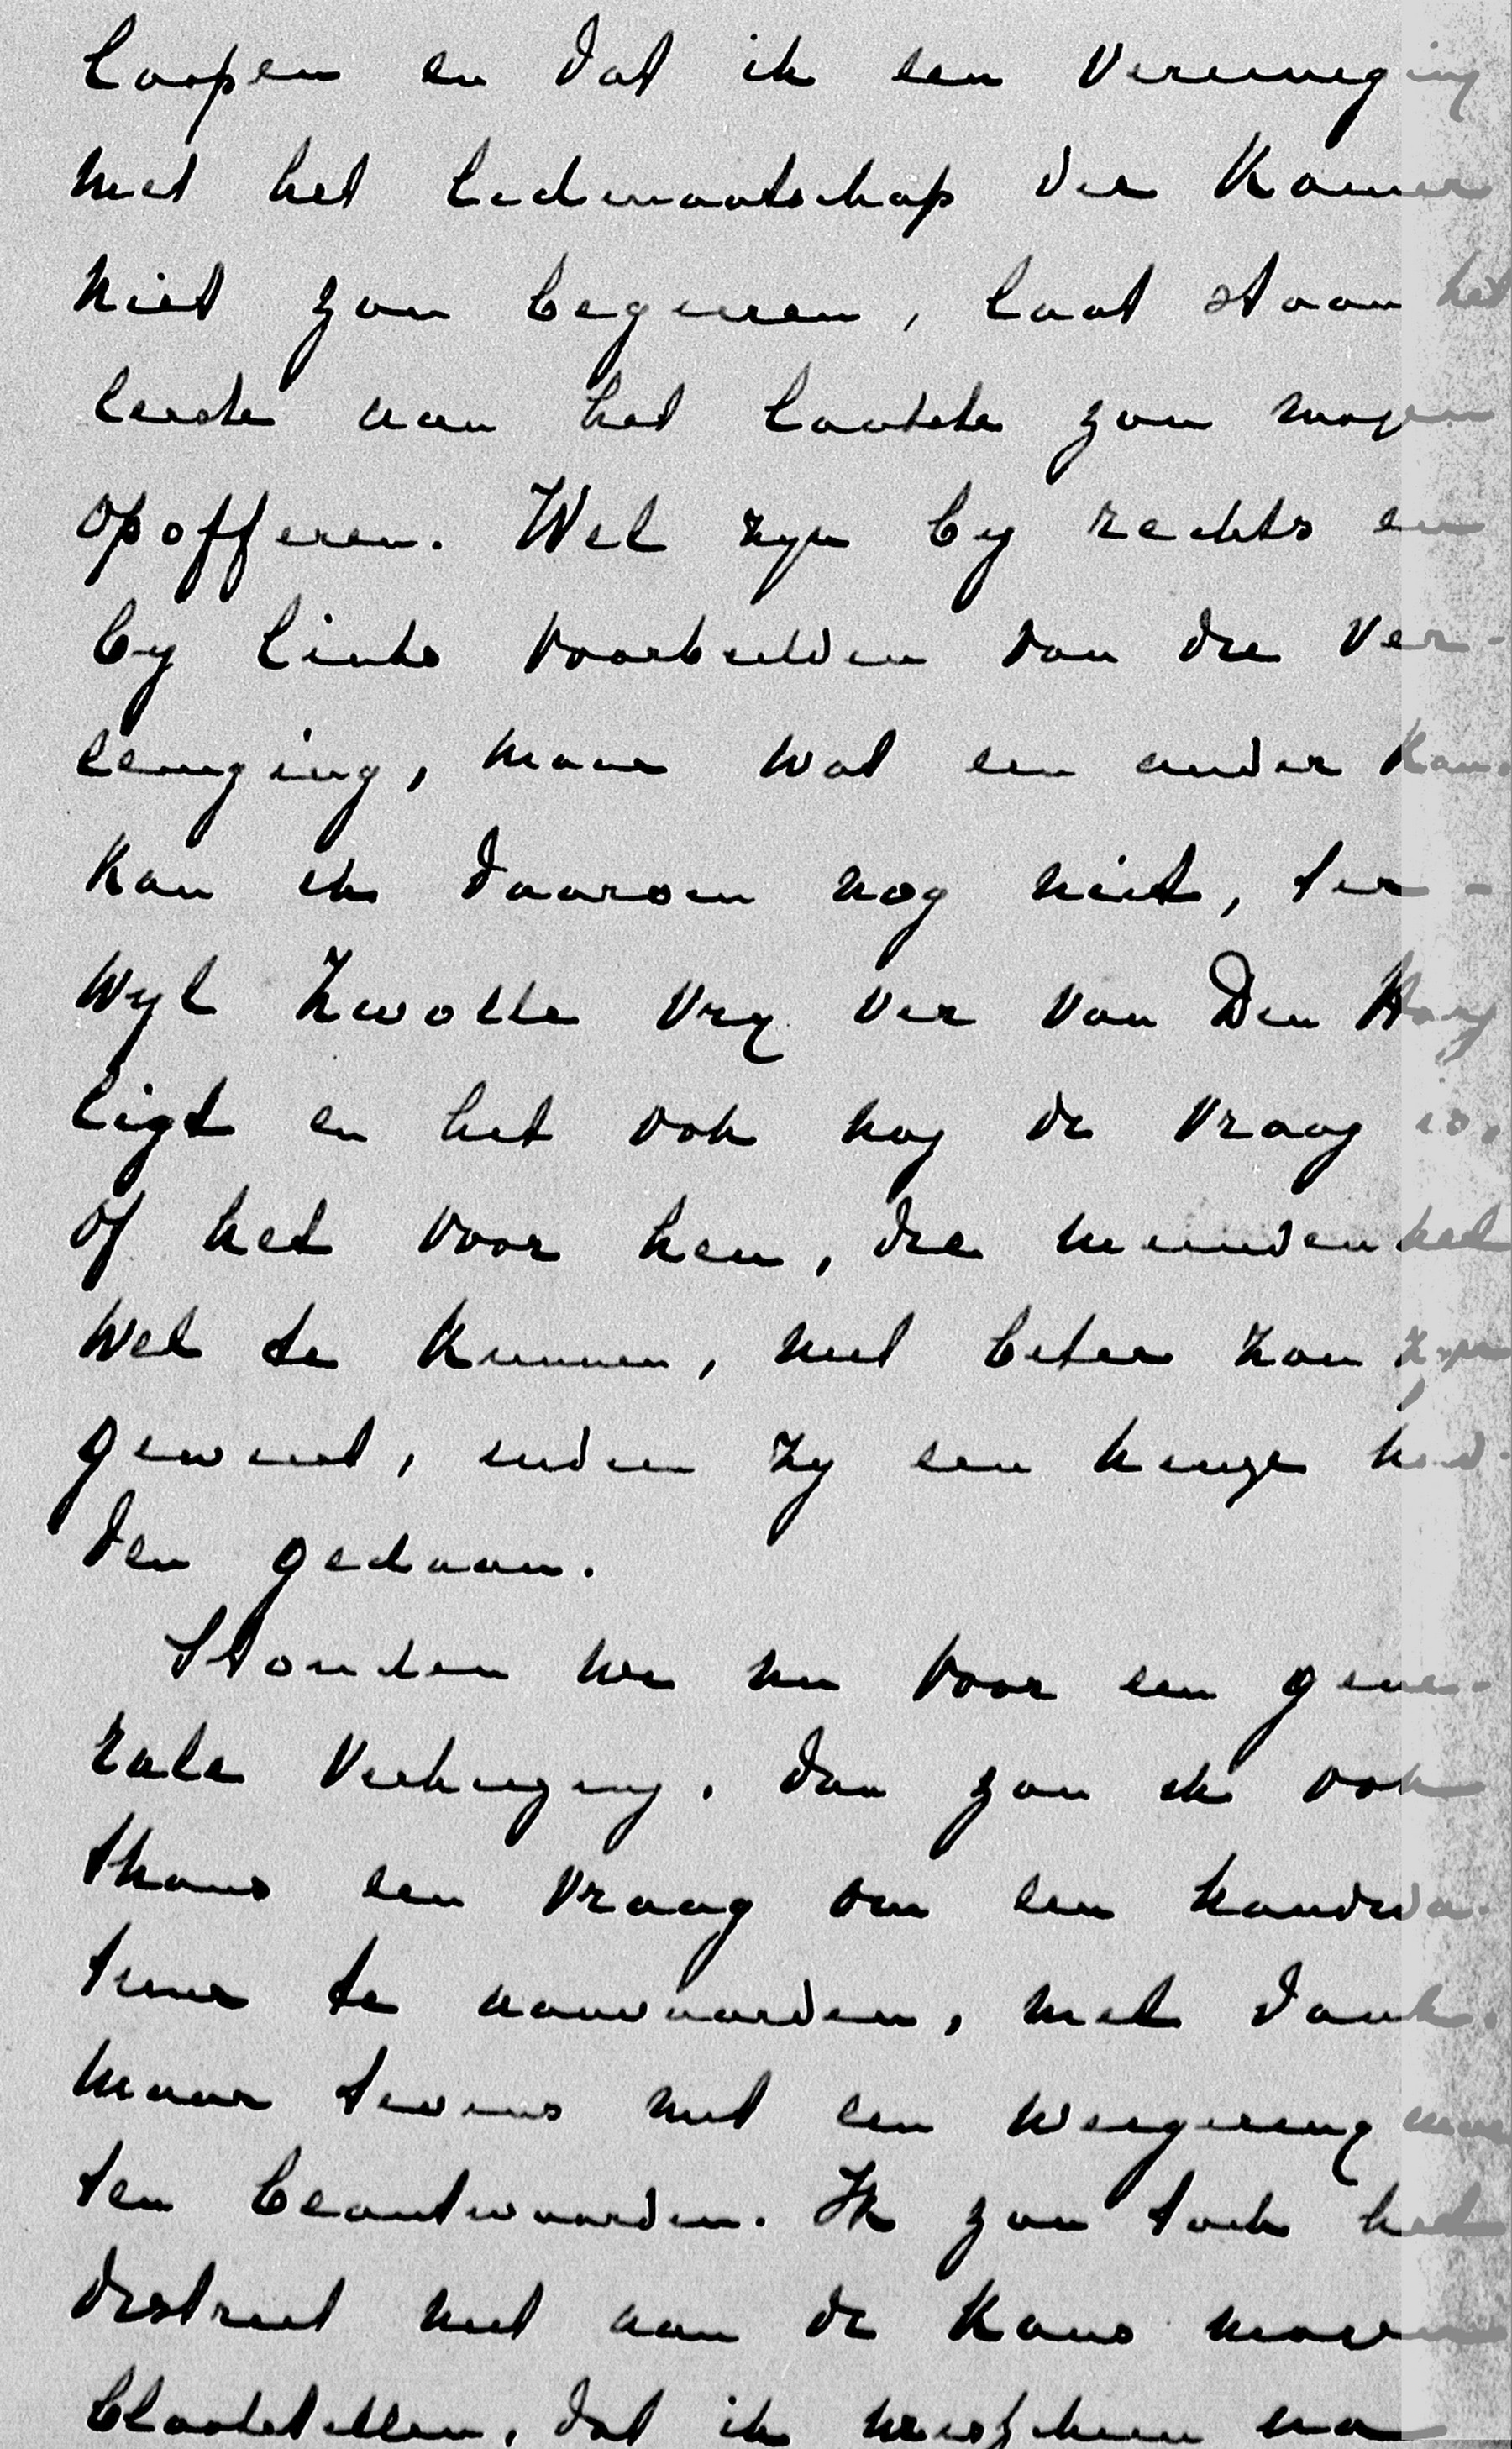 loopen en dat ik een vereeniging
met het lidmaatschap der Kamer
niet zou begeeren, laat staan het
eerste aan het laatste zou mogen
opofferen. Wel zyn by rechts en
by links voorbeelden van die ver-
eeniging, maar wat een ander kan,
kan ik daarom nog niet, ter-
wyl Zwolle vry ver van Den Haag
ligt en het ook nog de vraag is,
of het voor hen, die meenden het
wel te kunnen, niet beter zou zyn
geweest, indien zy een keuze had-
den gedaan.
Stonden we nu voor een gene-
rale verkiezing, dan zou ik ook
thans een vraag om een kandida-
tuur te aanvaarden, met dank,
maar tevens met een weigering moe-
ten beantwoorden. Ik zou toch het
district niet aan de kans mogen
blootstellen, dat ik misschien na